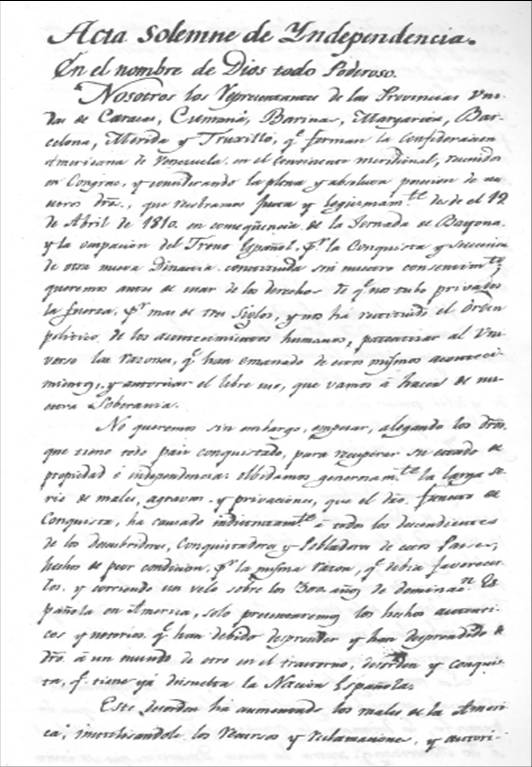 Acta solemne de Yndependencia.
En el nombre de Dios todo Poderoso.
Nosotros los Representantes de las Provincias Uni-
das de Caracas, Cumaná, Barinas, Margarita, Bar-
celona, Merida y Truxillo, q.e forman la Confederacion
Americana de Venezuela en el Continente meridional, reunidos
en Congreso, y considerando la plena y absoluta posecion de nu-
estros dros., que recobramos justa y legitimam.te desde el 19
de Abril de 1810. en conseqüencia de la Jornada de Bayona
y la ocupacion del Trono Español, p.r la Conquista y succesion
de otra nueva Dinastia constituida sin nuestro consentim.to,
queremos antes de usar de los derechos de q.e nos tubo privados
la fuerza, p.r mas de tres siglos, y nos ha restituido el órden
politico de los acontecimientos humanos, patentizar al Uni-
verso las razones, q.e han emanado de estos mismos aconteci-
mientos, y autorizar el libre uso, que vamos á hacer de nu-
estra Soberania.
No queremos sin embargo, empezar, alegando los dros.
que tiene todo pais conquistado, para recuperar su estado de
propiedad é independencia: olbidamos generosam.te la larga se-
rie de males, agravios y privaciones, que el dro. funesto de
Conquista, ha causado indistintam.te á todos los descendientes
de los descubridores, Conquistadores y Pobladores de estos Paises,
hechos de peor condicion, p.r la misma razon, q.e debia favorecer-
los. y corriendo un velo sobre los 300. años de dominac.n Es-
pañola en America, solo presentaremos los hechos autenti-
cos y notorios, q.e han debido desprender y han desprendido de
dro. á un mundo de otro en el trastorno, desorden y conquis-
ta, q.e tiene yá disuelta la Nacion Española.
Este desorden ha aumentado los males de la Ameri-
ca, inutilisandole los recursos y reclamaciones, y autori-